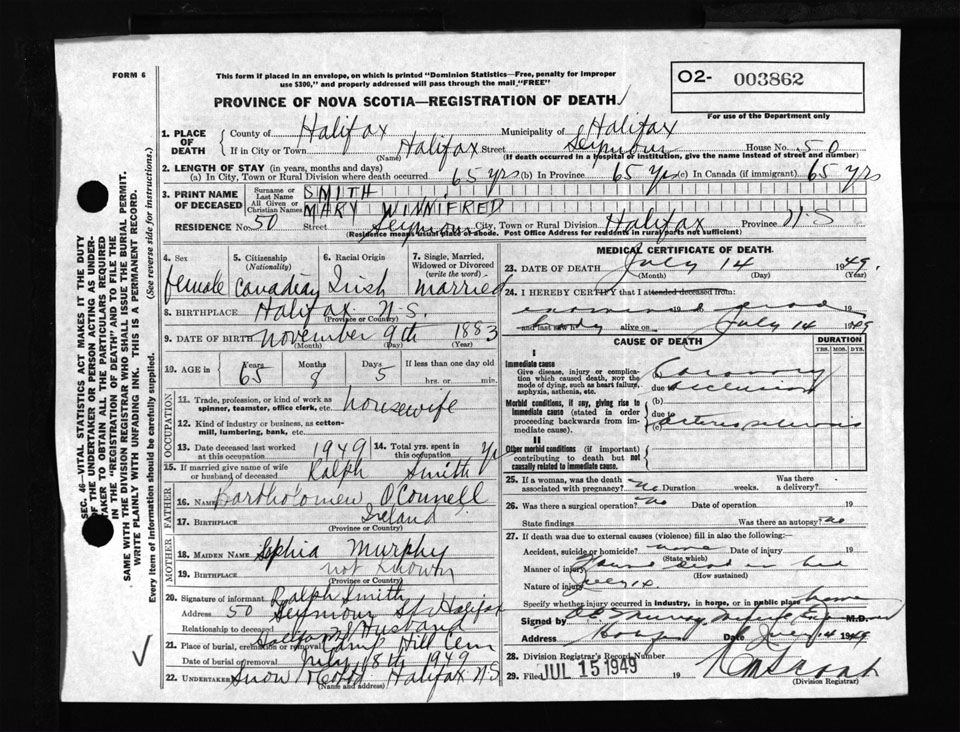 FORM 6
This form if placed in an envelope, on which is printed "Dominion Statistics—Free, penalty for improper
use $300," and properly addressed will pass through the mail "FREE"
O2- 003862
For use of the Department only
PROVINCE OF NOVA SCOTIA—REGISTRATION OF DEATH
1. PLACE OF DEATH
County of Halifax Municipality of Halifax
If in City or Town Halifax Street Seymour House No. 50
(Name) (If death occurred in a hospital or institution, give the name instead of street and number)
2. LENGTH OF STAY (in years, months and days)
(a) In City, Town or Rural Division where death occurred 65 yrs (b) In Province 65 yrs (c) In Canada (if immigrant) 65 yrs
3. PRINT NAME OF DECEASED
Surname or Last Name SMITH
All Given or Christian Names MARY WINNIFRED
RESIDENCE No. 50 Street Seymour City, Town or Rural Division Halifax Province N.S
(Residence means usual place of abode. Post Office Address for residents in rural parts not sufficient)
4. Sex female
5. Citizenship (Nationality) Canadian
6. Racial Origin Irish
7. Single, Married, Widowed or Divorced (write the word) married
8. BIRTHPLACE Halifax N.S.
(Province or Country)
9. DATE OF BIRTH November 9th 1883
(Month) (Day) (Year)
10. AGE in Years 65 Months 8 Days 5 If less than one day
hrs. or min.
OCCUPATION
11. Trade, profession or kind of work as spinner, teamster, office clerk, etc. housewife
12. Kind of industry or business, as cotten-mill, lumbering, bank, etc.
13. Date deceased last worked at this occupation 1949
14. Total yrs. spent in this occupation
15. If married give name of wife or husband Ralph Smith
FATHER
16. Name Bartholomew O'Connell
17. Birthplace Ireland
(Province or Country)
MOTHER
18. Maiden Name Sophia Murphy
19. Birthplace not known
(Province or Country)
20. Signature of informant Ralph Smith
Address 50 Seymour St Halifax
Relationship to deceased Husband
21. Place of burial, cremation or removal Camp Hill Cem
Date of burial or removal July 18th 1949
22. Undertaker Snow Halifax N.S.
(Name and address)
MEDICAL CERTIFICATE OF DEATH.
23. DATE OF DEATH July 14 1949
(Month) (Day) (Year)
24. I HEREBY CERTIFY that I attended deceased from
examined dead 19
body and last saw h alive on July 14 1949
CAUSE OF DEATH
DURATION
YRS. MOS. DYS.
I
Immediate cause
Give disease, injury or complication which caused death, NOT the mode of dying, such as heart failure, asphyxia, asthenia, etc.
Coronary
due to occlusion
Morbid conditions, if any, giving rise to immediate cause (stated in order proceeding backwards from immediate cause).
(b)
due to
(c) arterio sclerosis
II
Other morbid conditions (if important) contributing to death but not causally related to immediate cause.
25. If a woman, was the death associated with pregnancy? no Duration weeks. Was there a delivery?
26. Was there a surgical operation? no Date of operation 19
State findings Was there an autopsy? no
27. If death was due to external causes (violence) fill in also the following:
Accident, suicide or homicide? none Date of injury 19
(State which)
Manner of injury found dead in bed
(How sustained)
Nature of injury July 14
Specify whether injury occurred in industry, in home, or in public place home
Signed by M.D.
Address Date July 14 1949
28. Division Registrar's Record Number
29. Filed JUL 15 1949
(Division Registrar)
SEC. 46—VITAL STATISTICS ACT MAKES IT THE DUTY
OF THE UNDERTAKER OR PERSON ACTING AS UNDERTAKER TO OBTAIN ALL THE PARTICULARS REQUIRED
IN THE "REGISTRATION OF DEATH" AND TO FILE THE
SAME WITH THE DIVISION REGISTRAR WHO SHALL ISSUE THE BURIAL PERMIT.
WRITE PLAINLY WITH UNFADING INK. THIS IS A PERMANENT RECORD.
Every item of information should be carefully supplied. (See reverse side for instructions.)